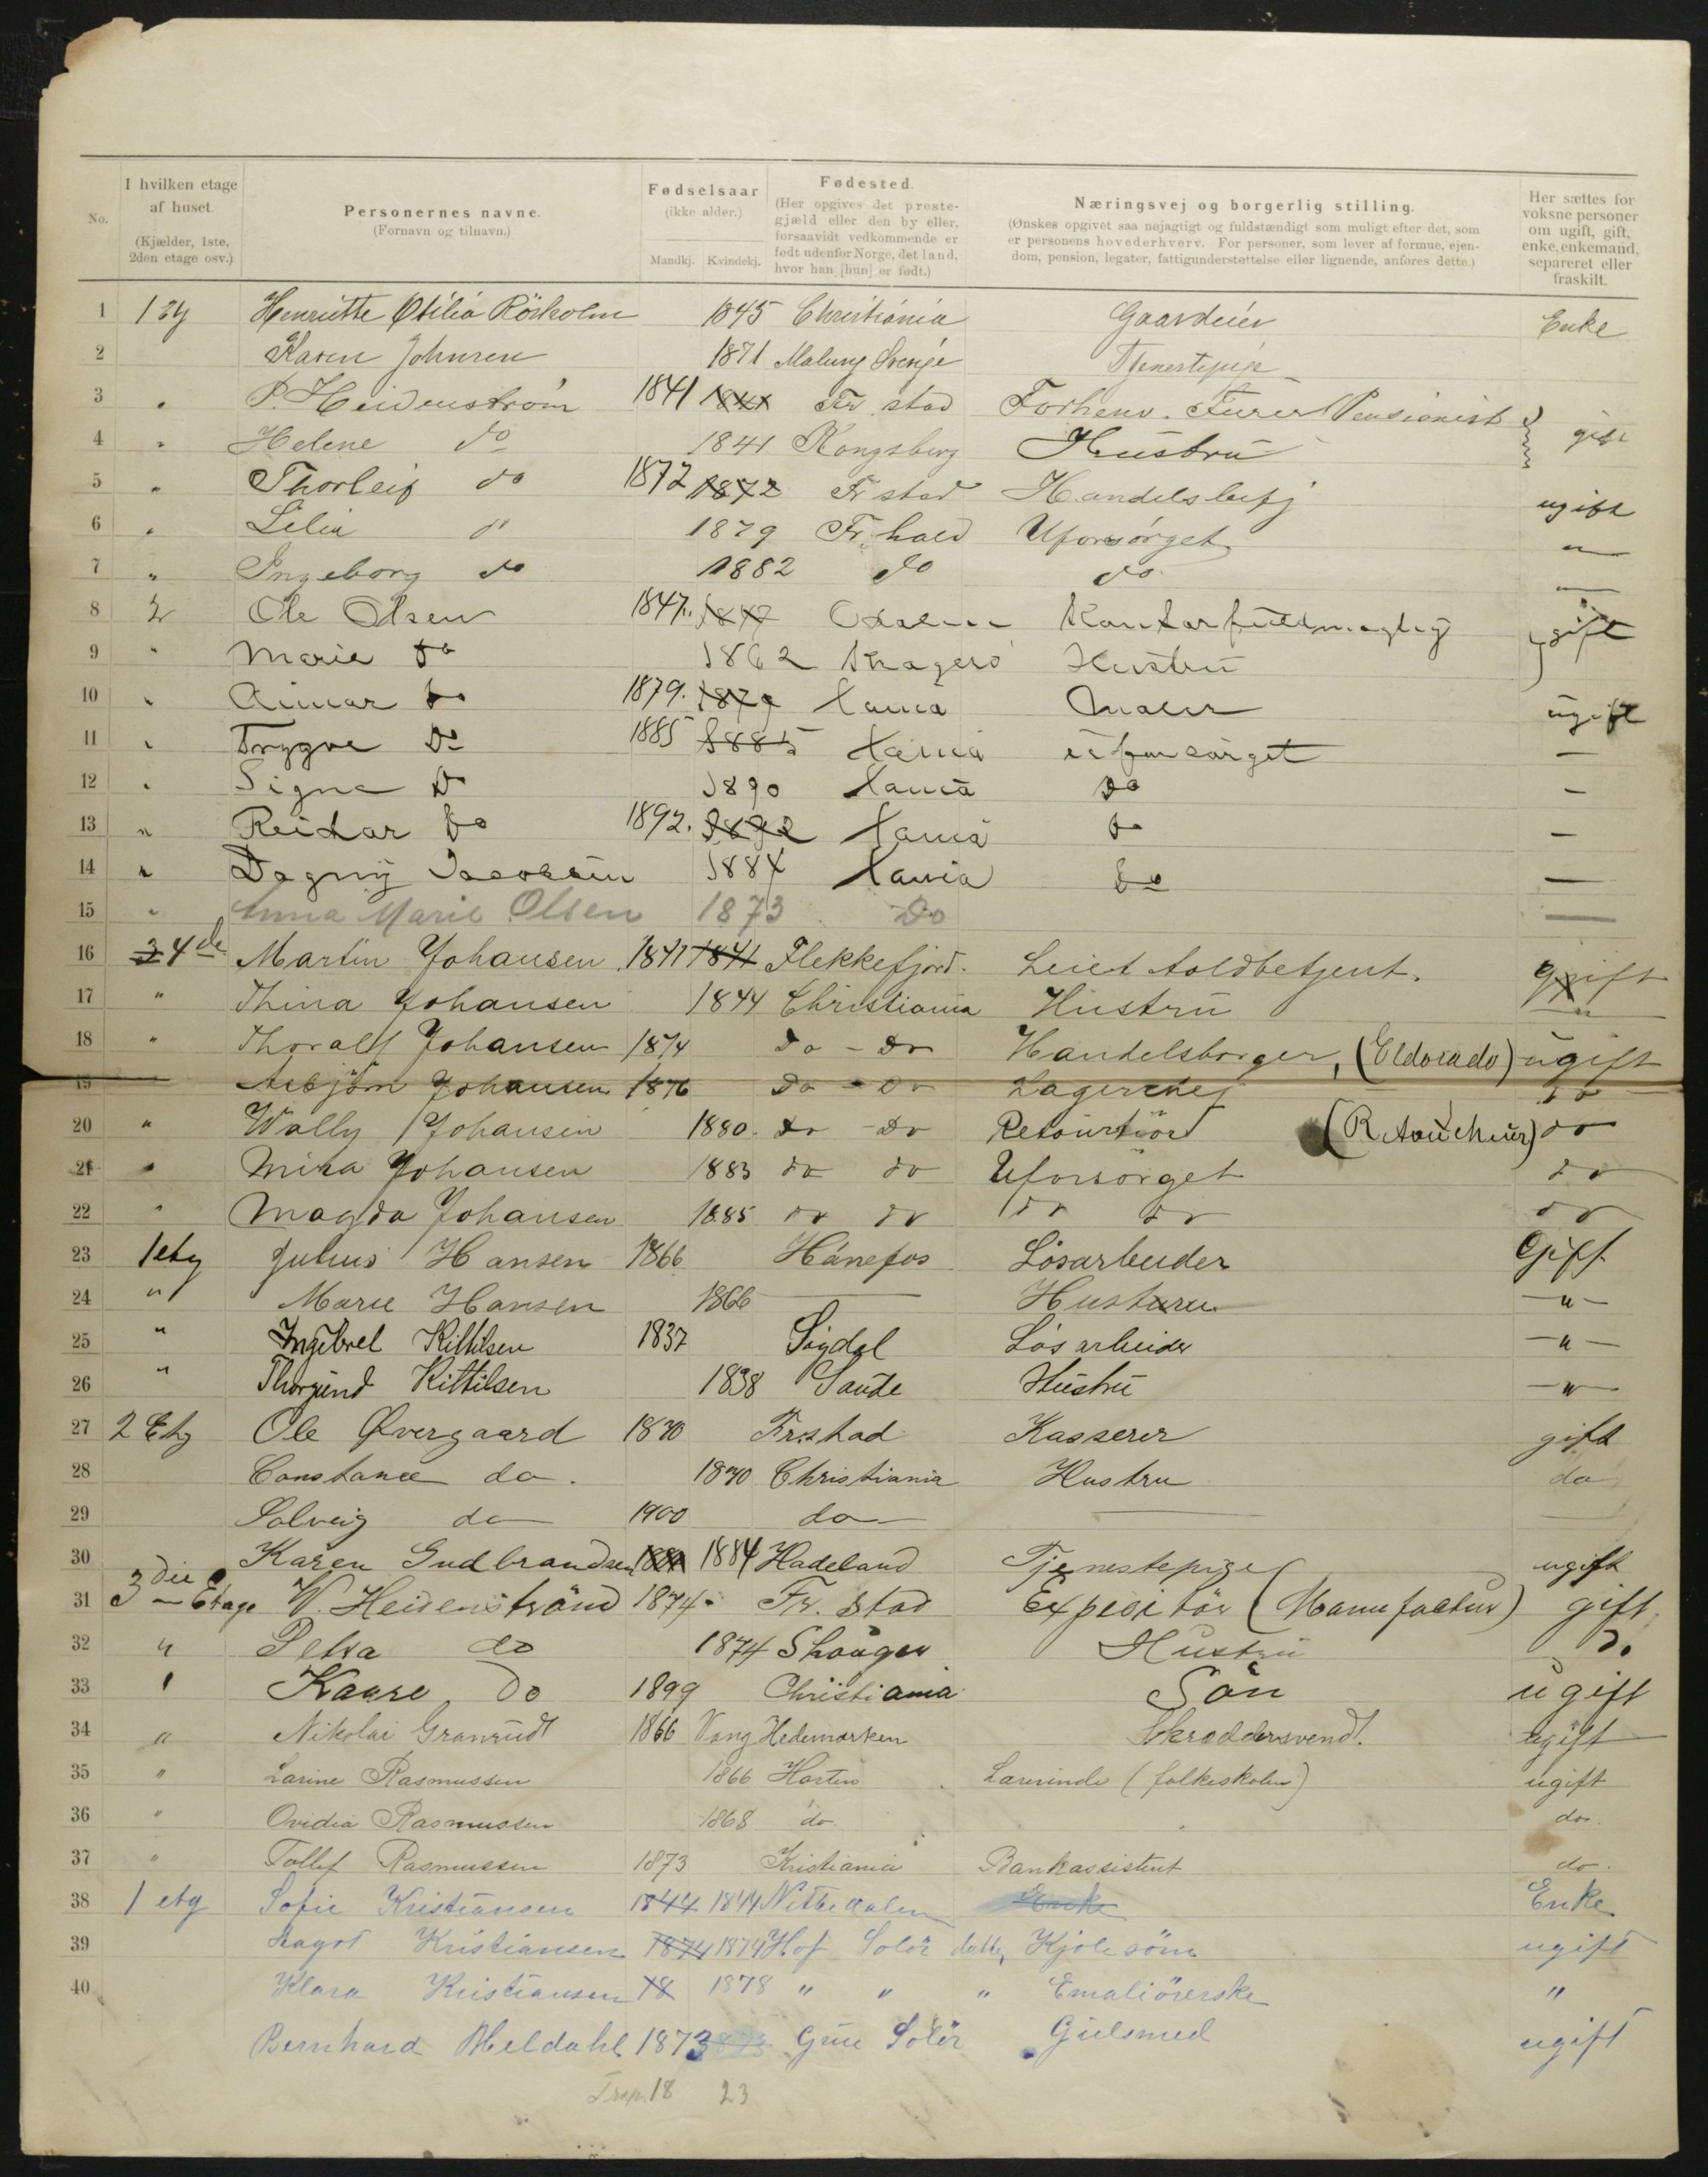 No.
I hvilken etage af huset. (Kjælder, 1ste, 2den etage osv.)
Personernes navne. (Fornavn og tilnavn.)
Fødselsaar (ikke alder.) Mandkj. Kvindekj.
Fødested. (Her opgives det prestegjæld eller den by eller, forsaavidt vedkommende er født udenfor Norge, det land, hvor han [hun] er født.)
Næringsvej og borgerlig stilling. (Ønskes opgivet saa nøjagtigt og fuldstændigt som muligt efter det, som er personens hovederhverv. For personer, som lever af formue, ejendom, pension, legater, fattigunderstøttelse eller lignende, anføres dette.)
Her sættes for voksne personer om ugift, gift, enke, enkemand, separeret eller fraskilt.
1 Henriette Otilia 1845 Christiania Gaardeier Enke
2 Karen Johnsen 1871 Malung Sverige Tjenestepige
3 " P. Heidenstrøm 1841 1841 Fr. stad Forhenv. Furer Pensionist gift
4 " Helene do 1841 Kongsberg Hustru
5 " Thorleif do 1872 1872 Fr stad Handelsbetj ugift
6 " Lilia do 1879 Fr. hald Uforsørget "
7 " Ingeborg do 1882 do do "
8 2 Ole Olsen 1847. 1847 Kontorfuldmægtig gift
9 " Marie do 1862 Kragerø Hustru
10 " Do 1879. 1879 Xania Maler ugift
11 " Trygve Do 1885 1885 Xania uforsørget —
12 " Signe Do 1890 Xania Do —
13 " Reidar Do 1892. 1892 Xania Do —
14 " Dagny Jacobsen 1884 Xania Do —
15 " Anna Marie Olsen 1873 Do —
16 3 4de Martin Johansen 1841 1841 Flekkefjord. Leiet toldbetjent. gift
17 " Thina Johansen 1844 Christiania Hustru "
18 " Thoralf Johansen 1874 Do - Do Handelsborger, (Eldorado) ugift
19 Asbjørn Johansen 1876 Do - Do Do
20 " Wally Johansen 1880. Do - Do (Retoucheur) do
21 " Mina Johansen 1883 do do Uforsørget do
22 " Magda Johansen 1885 do do do do do
23 1 etg Julius Hansen 1866 Hønefos Løsarbeider Gift
24 " Marie Hansen 1866 — Hustru — " —
25 " Ingebret Kittilsen 1837 Sigdal Løsarbeider — " —
26 " Kittilsen 1838 Saude Hustru — " —
27 2 Etg Ole Øvergaard 1870 Fr.stad Kasserer gift
28 Constance do. 1870 Christiania Hustru do
29 Solveig do 1900 do —
30 Karen Gudbrandsen 1884 Hadeland Tjenestepige ugift
31 3die Etage V. Heidenstrøm 1874. Fr. stad Expeditør (Manufactur) gift
32 " Petra do 1874 Hustru Do
33 " Kaare Do 1899 Christiania Søn ugift
34 " Nikolai Granrudt 1866 Vang Hedemarken Skræddersvend. ugift
35 " Larine Rasmussen 1866 Horten Lærerinde (folkeskolen) ugift
36 " Ovidia Rasmussen 1868 do. do.
37 " Rasmussen 1873 Kristiania Bankassistent do.
38 1 etg Sofie Kristiansen 1844 1844 Nittedalen Enke Enke
39 Dagot Kristiansen 1874 1874 Hof Solør datter Kjolesøm ugift
40 Klara Kristiansen 18 1878 " " " Emaliørerske "
Bernhard Meldahl 1873 1873 Grue Solør Gulsmed ugift
18 23